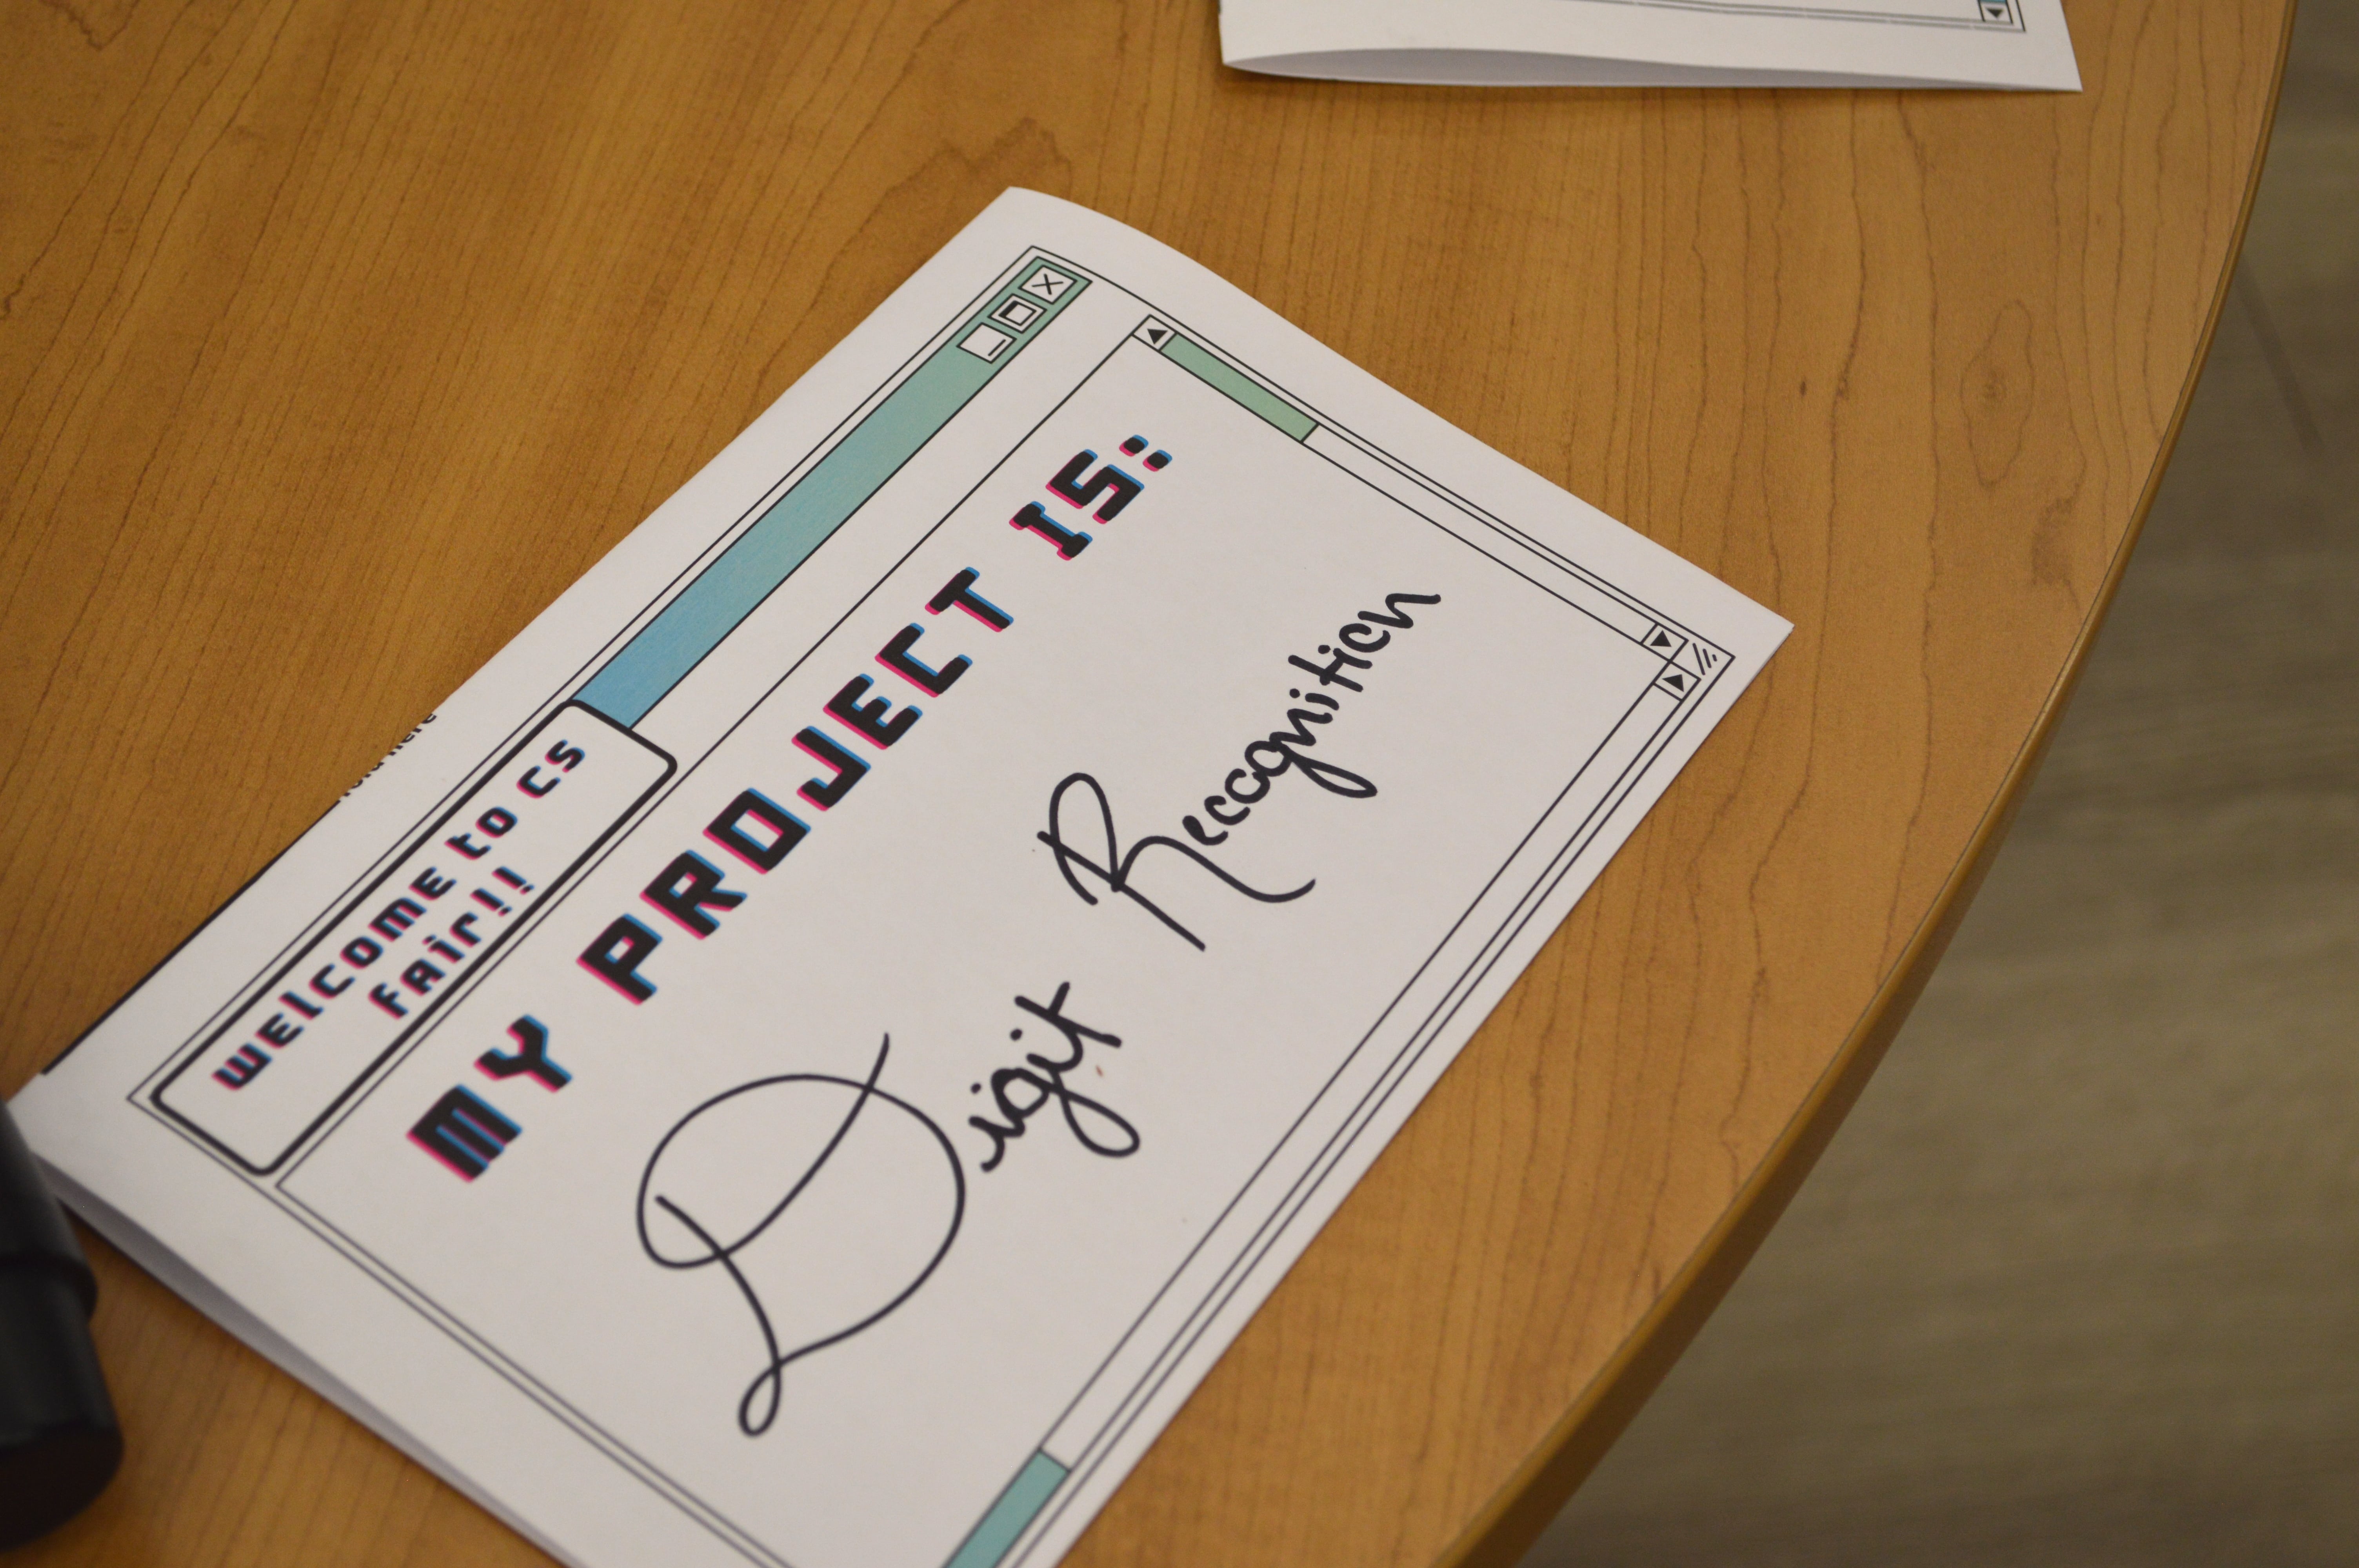 WElCOmE to CS
fAir!!
MY PROJECT IS:
Digit Recognition